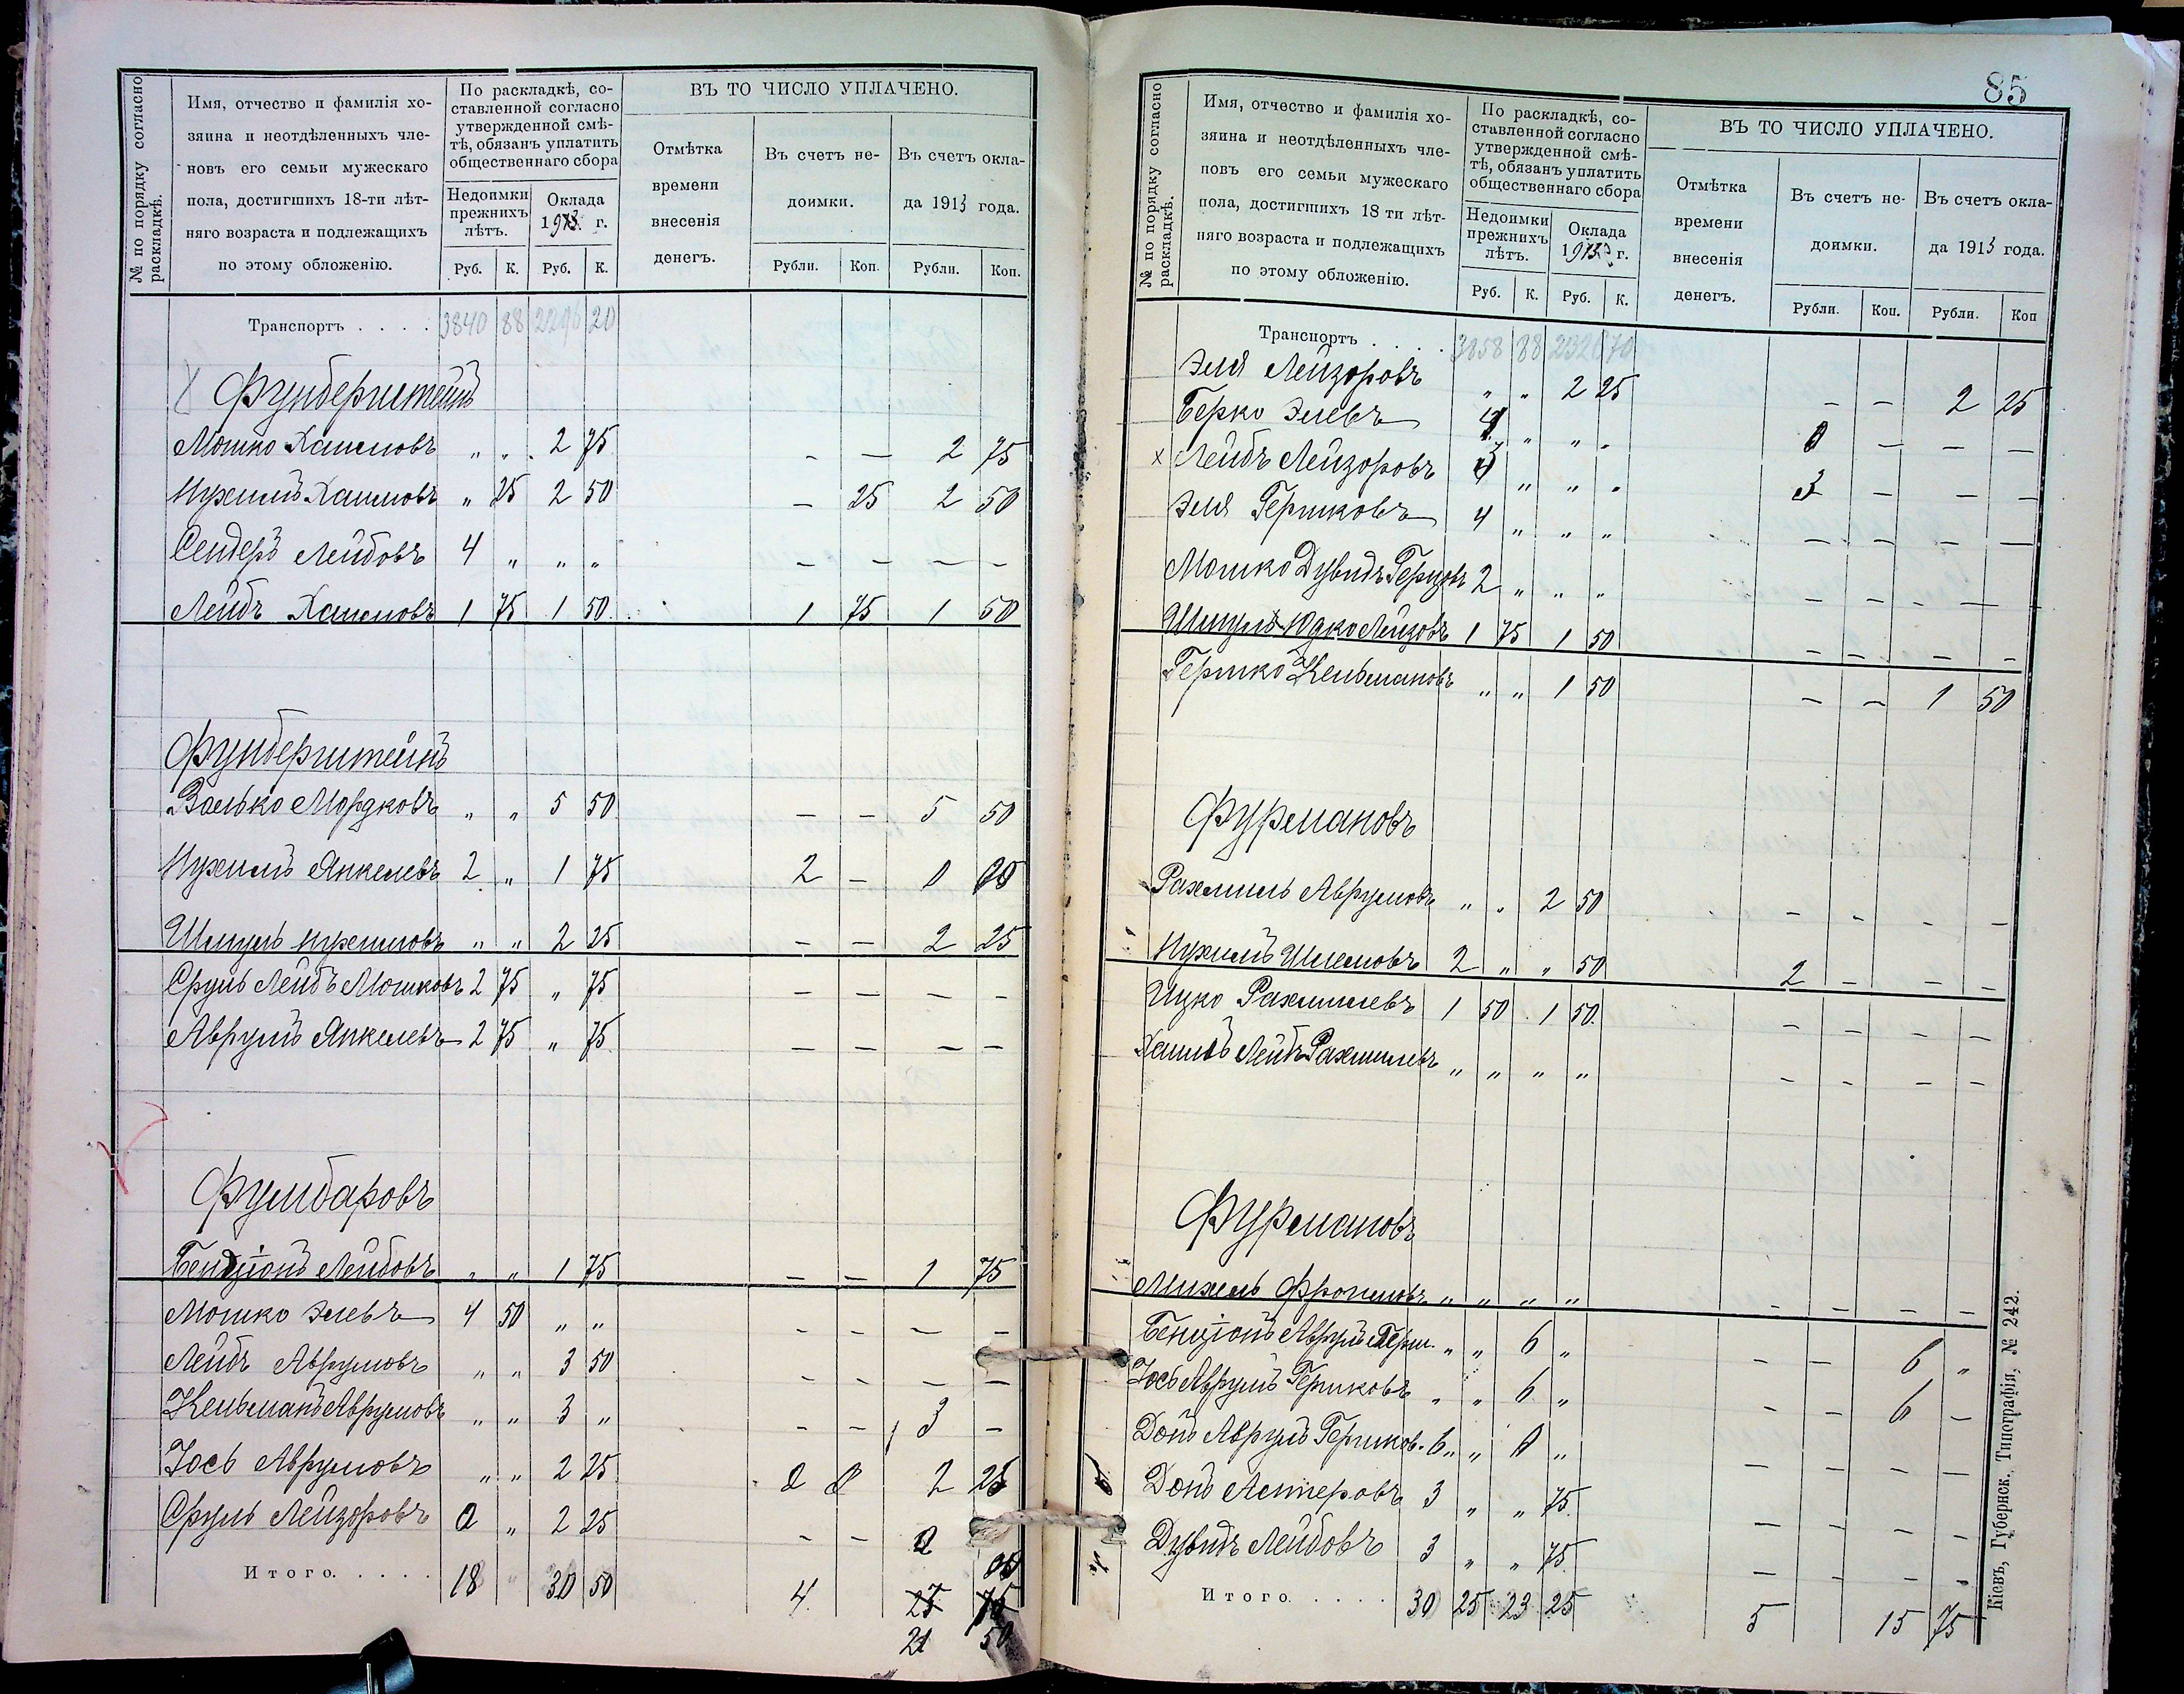 № по порядку согласно раскладкѣ.
Имя, отчество и фамилія хозяина и неотдѣленныхъ членовъ его семьи мужескаго пола, достигшихъ 18-ти лѣтняго возраста и подлежащихъ по этому обложенію.
По раскладкѣ, составленной согласно утвержденной смѣтѣ, обязанъ уплатить общественнаго сбора
Недоимки прежнихъ лѣтъ.
Оклада 1913 г.
Руб. К. Руб. К.
ВЪ ТО ЧИСЛО УПЛАЧЕНО.
Отмѣтка времени внесенія денегъ.
Въ счетъ недоимки.
Въ счетъ оклада 1913 года.
Рубли. Коп. Рубли. Коп.
Транспортъ . . . . 3840 88 2296 20
Фунберштейнъ
Мошко Хаимовъ " " 2 75 - - 2 75
Нухимъ Хаимовъ " 25 2 50 - 25 2 50
Сендеръ Лейбовъ 4 " " " - - - -
Лейбъ Хаимовъ 1 75 1 50 1 75 1 50
Фунберштейнъ
Волько Мордковъ " " 5 50 - - 5 50
Нухимъ Янкелевъ 2 " 1 75 2 -
Шмуль Нухимовъ " " 2 25 - - 2 25
Сруль Лейбъ Мошковъ 2 75 " 75 - - - -
Аврумъ Янкелевъ 2 75 " 75 - - - -
Фумбаровъ
Бенціонъ Лейбовъ " " 1 75 - - 1 75
Мошко Элевъ 4 50 " " - - - -
Лейбъ Аврумовъ " " 3 50 - - - -
Кельманъ Аврумовъ " " 3 " - - 3 -
Іось Аврумовъ " " 2 25 2 25
Сруль Лейзоровъ " 2 25 - -
Итого. . . . . 18 " 30 50 4 27 75
21 50
85
№ по порядку согласно раскладкѣ.
Имя, отчество и фамилія хозяина и неотдѣленныхъ членовъ его семьи мужескаго пола, достигшихъ 18 ти лѣтняго возраста и подлежащихъ по этому обложенію.
По раскладкѣ, составленной согласно утвержденной смѣтѣ, обязанъ уплатить общественнаго сбора
Недоимки прежнихъ лѣтъ.
Оклада 1913 г.
Руб. К. Руб. К.
ВЪ ТО ЧИСЛО УПЛАЧЕНО.
Отмѣтка времени внесенія денегъ.
Въ счетъ недоимки.
Въ счетъ оклада 1913 года.
Рубли. Коп. Рубли. Коп
Транспортъ . . . . 3858 88 2326 70
Эля Лейзоровъ " " 2 25 - - 2 25
Берко Элевъ " " " - - -
х Лейбъ Лейзоровъ " " " 3 - - -
Эля Гершковъ 4 " " " - - - -
Мошко Дувидъ Герцовъ 2 " " " - - - -
Шмуль Юдко Лейзовъ 1 75 1 50 - - - -
Гершко Кельмановъ " " 1 50 - - 1 50
Фурмановъ
Рахмиль Аврумовъ " " 2 50 - - - -
Нухимъ Шлемовъ 2 " " 50 2 - - -
Ицко Рахмилевъ 1 50 1 50 - - - -
Хаимъ Лейбъ Рахмилевъ " " " " - - - -
Фурмановъ
Михель Фроимовъ " " " " - - - -
Бенціонъ Аврумъ Герш. " " 6 " - - 6 "
Іось Аврумъ Гершковъ " " 6 " - - 6 -
Донъ Аврумъ Гершков. 6 " " - - - -
Донъ Аснеровъ 3 " " 75 - - - -
Дувидъ Лейбовъ 3 " " 75 - - - -
Итого . . . . . 30 25 23 25 5 15 75
Кіевъ, Губернск. Типографія, № 242.